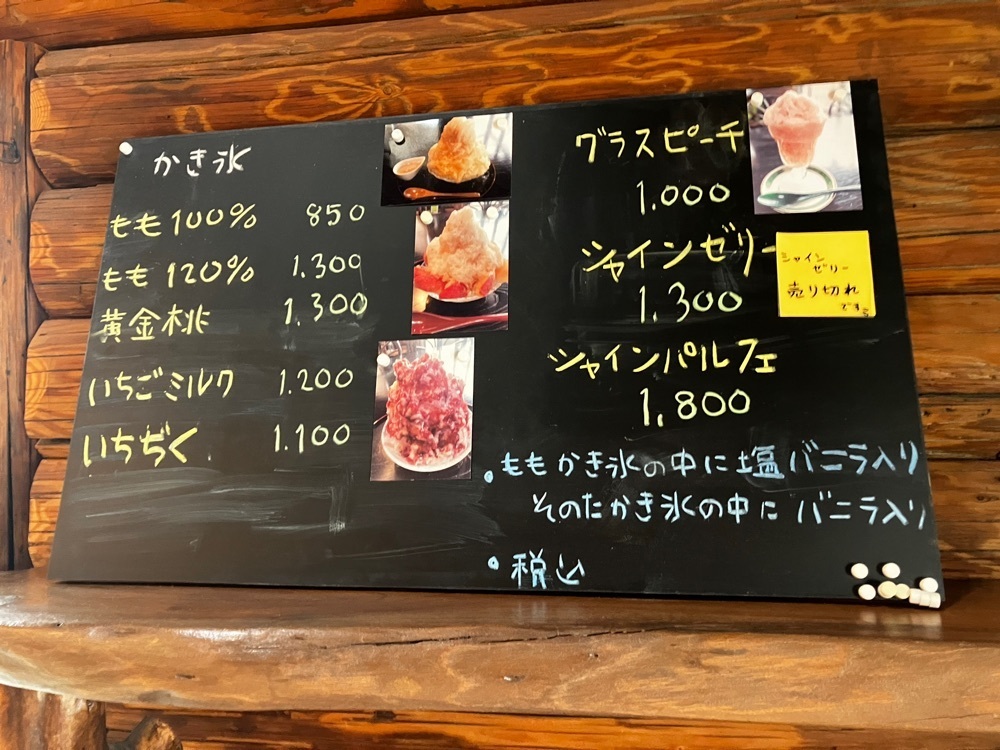 かき氷
もも100% 850
もも120% 1.300
黄金桃 1.300
いちごミルク 1.200
いちぢく 1.100
グラスピーチ
1.000
シャインゼリー
1.300
シャイン
ゼリー
売り切れ
です
シャインパルフェ
1,800
・ももかき氷の中に塩バニラ入り
そのたかき氷の中に バニラ入り
・税込